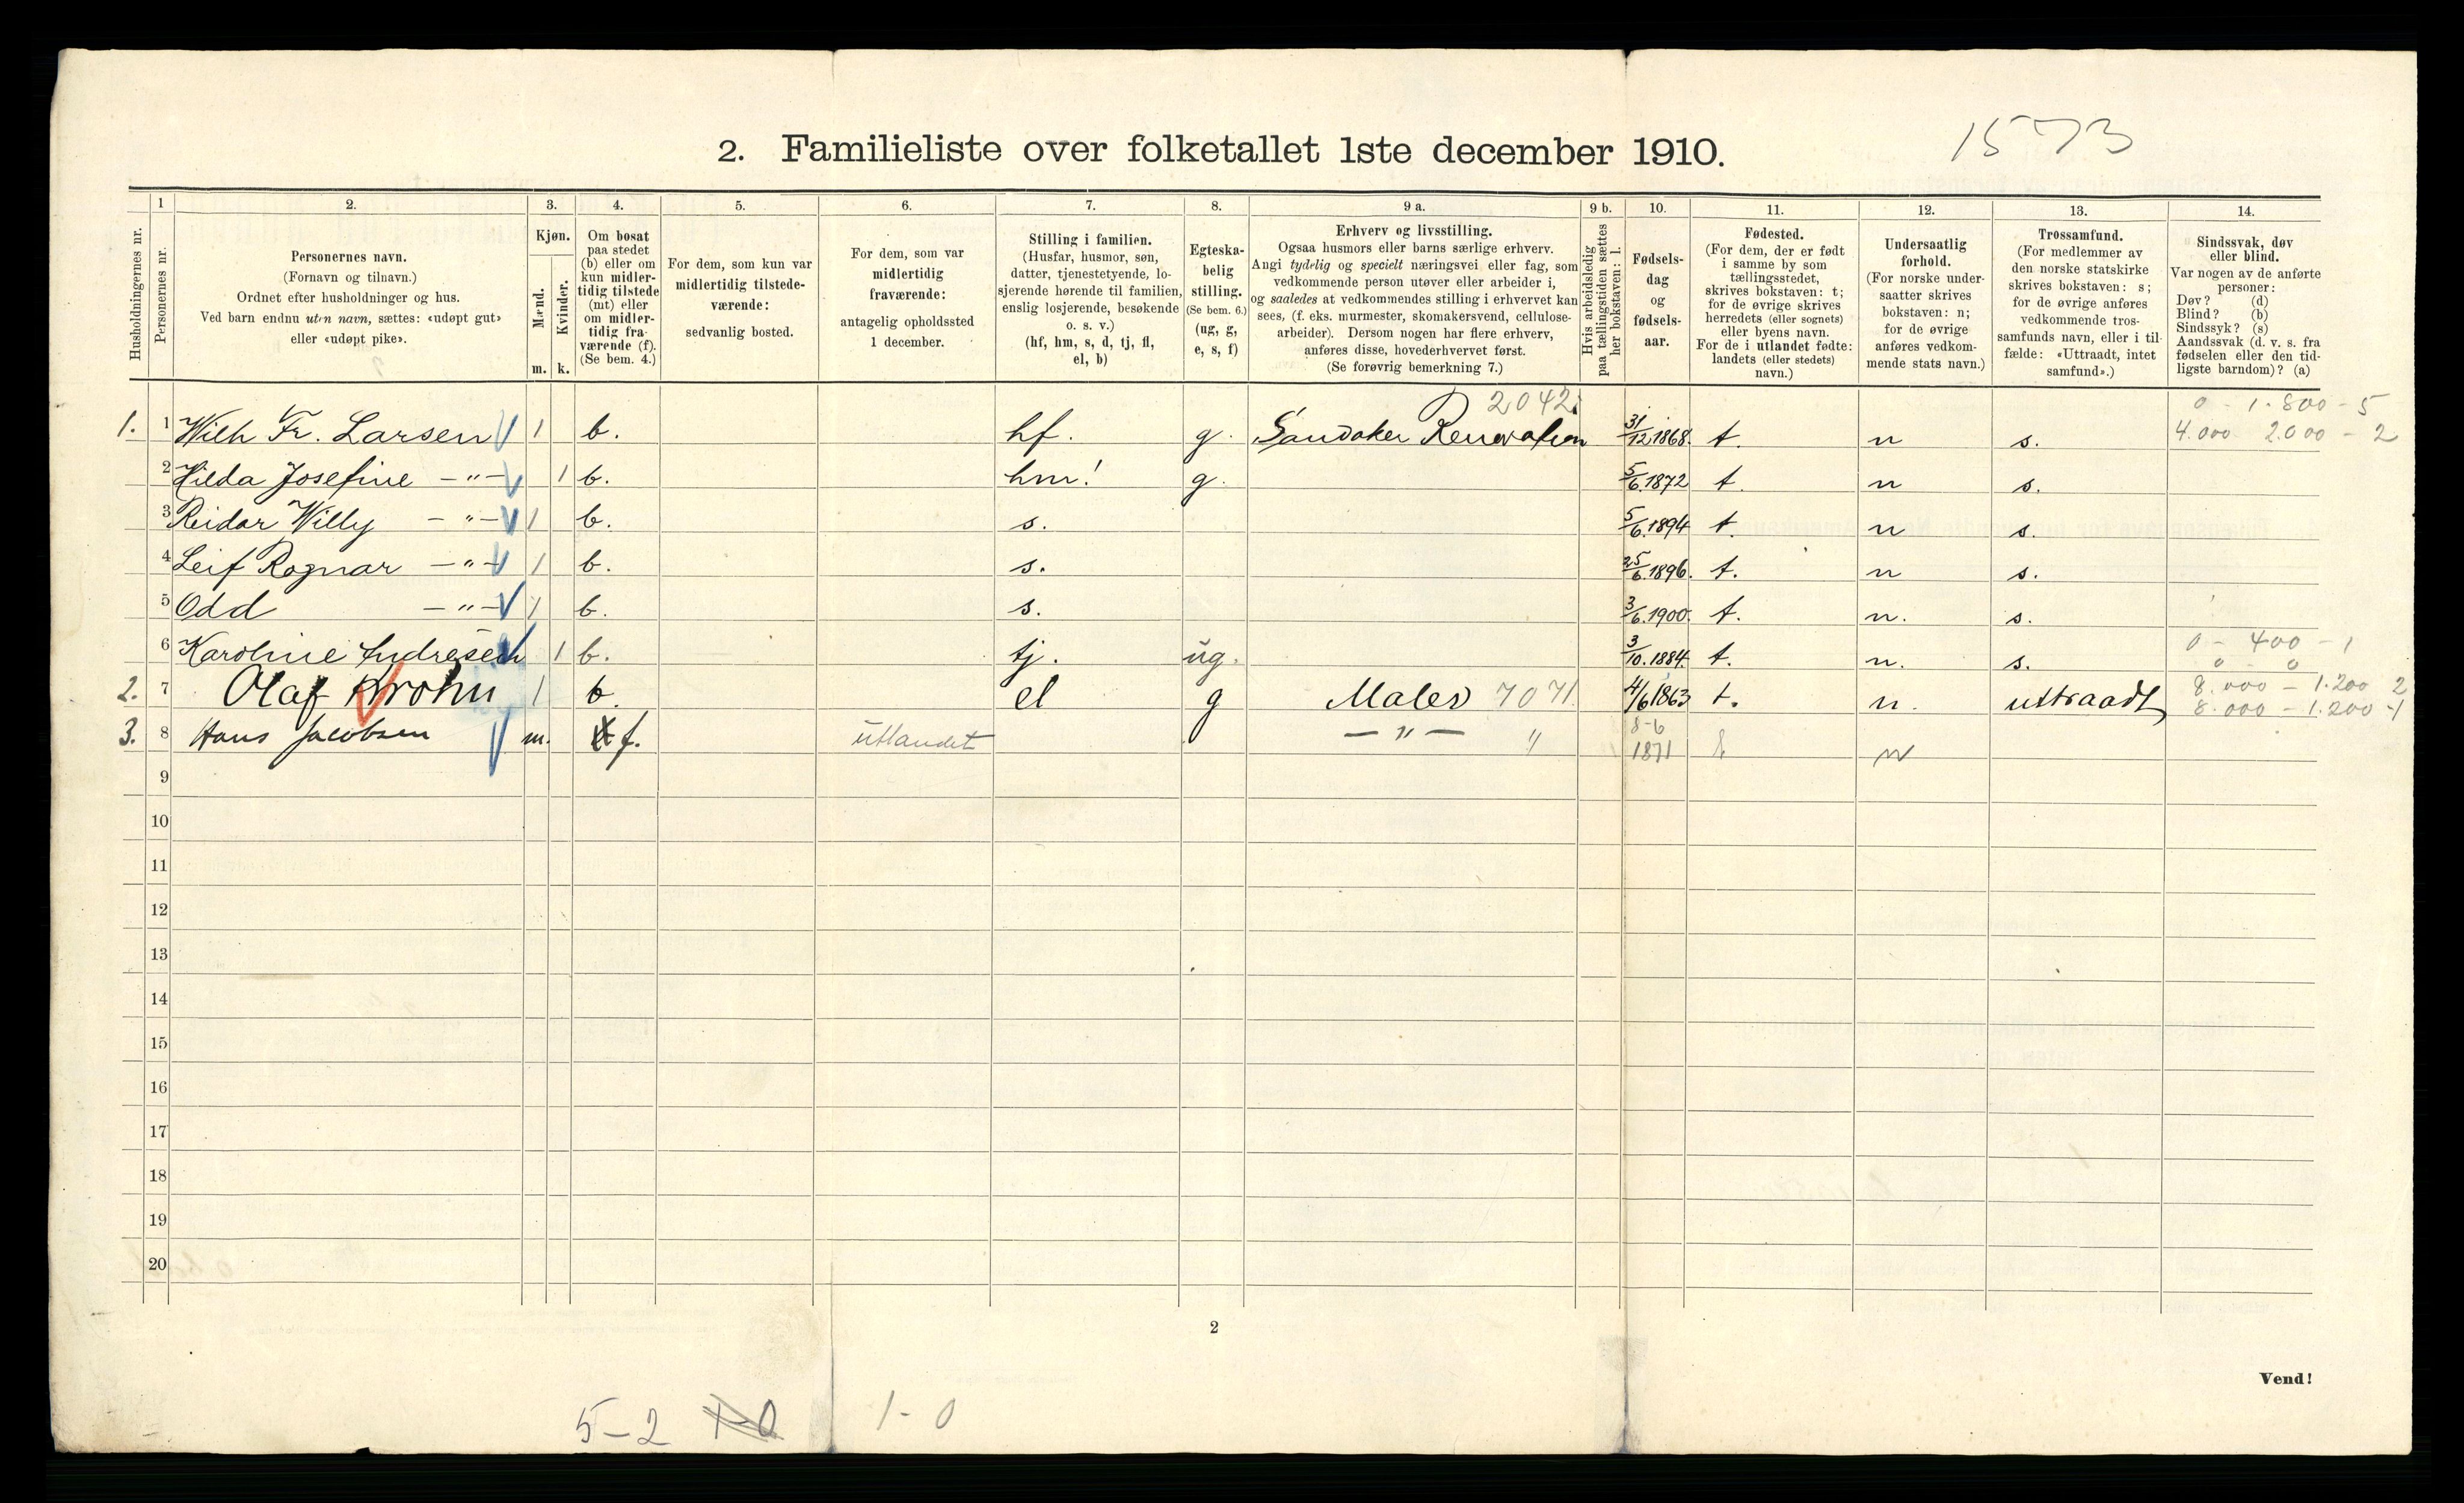 1573
2. Familieliste over folketallet 1ste december 1910.
1 2. 3. 4. 5. 6. 7. 8. 9 a. 9 b. 10. 11. 12. 13. 14.
Husholdningernes nr.
Personernes nr.
Personernes navn.
(Fornavn og tilnavn.)
Ordnet efter husholdninger og hus.
Ved barn endnu uten navn, sættes: «udøpt gut»
eller «udøpt pike».
Kjøn.
Mænd.
Kvinder.
m. k.
Om bosat
paa stedet
(b) eller om
kun midler-
tidig tilstede
(mt) eller
om midler-
tidig fra-
værende (f).
(Se bem. 4.)
For dem, som kun var
midlertidig tilstede-
værende:
sedvanlig bosted.
For dem, som var
midlertidig
fraværende:
antagelig opholdssted
1 december.
Stilling i familien.
(Husfar, husmor, søn,
datter, tjenestetyende, lo-
sjerende hørende til familien,
enslig losjerende, besøkende
o. s. v.)
(hf, hm, s, d, tj, fl,
el, b)
Egteska-
belig
stilling.
(Se bem. 6.)
(ug, g,
e, s, f)
Erhverv og livsstilling.
Ogsaa husmors eller barns særlige erhverv.
Angi tydelig og specielt næringsvei eller fag, som
vedkommende person utøver eller arbeider i,
og saaledes at vedkommendes stilling i erhvervet kan
sees, (f. eks. murmester, skomakersvend, cellulose-
arbeider). Dersom nogen har flere erhverv,
anføres disse, hovederhvervet først.
(Se forøvrig bemerkning 7.)
Hvis arbeidsledig
paa tællingstiden sættes
her bokstaven: l.
Fødsels-
dag
og
fødsels-
aar.
Fødested.
(For dem, der er født
i samme by som
tællingsstedet,
skrives bokstaven: t;
for de øvrige skrives
herredets (eller sognets)
eller byens navn.
For de i utlandet fødte:
landets (eller stedets)
navn.)
Undersaatlig
forhold.
(For norske under-
saatter skrives
bokstaven: n;
for de øvrige
anføres vedkom-
mende stats navn.)
Trossamfund.
(For medlemmer av
den norske statskirke
skrives bokstaven: s;
for de øvrige anføres
vedkommende tros-
samfunds navn, eller i til-
fælde: «Uttraadt, intet
samfund».)
Sindssvak, døv
eller blind.
Var nogen av de anførte
personer:
Døv? (d)
Blind? (b)
Sindssyk? (s)
Aandssvak (d. v. s. fra
fødselen eller den tid-
ligste barndom)? (a)
2042 0 - 1.800 - 5
1. 1 Wilh Fr. Larsen 1 b. hf. g. Sandaker Renovation 31/12 1868 t. n s. 4.000 2.000 - 2
2 Hilda Josefine - " - 1 b. hm! g. 5/6 1872 t. n s.
3 Reidar Willy - " - 1 b. s. 5/6 1894 t. n s.
4 Leif Ragnar - " - 1 b. s. 25/6 1896. t. n s.
5 Odd - " - 1 b. s. 3/6 1900. t. n. s.
6 Karoline Andresen 1 b. tj. ug. 3/10. 1884. t. n. s. 0 - 400 - 1
0 - 0
2. 7 Olaf Krohn 1 b. el g Maler 7071 4/6 1863 t. n. uttraadt 8.000 - 1.200 2
8.000 - 1.200 - 1
3. 8 Hans Jacobsen m. f. utlandet - " - " 8-6 1871 n
9
10
11
12
13
14
15
16
17
18
19
20
2
Vend!
5-2 1-0 1-0